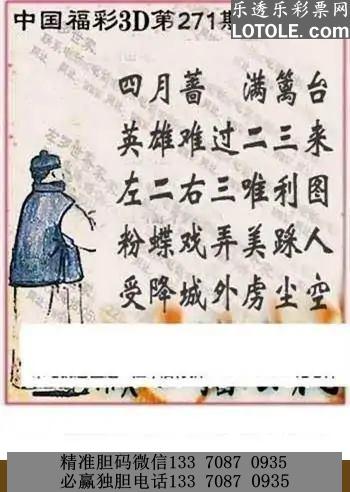 乐透乐彩票网
LOTOLE.COM
中国福彩3D第271期
四月蔷 满篱台
英雄难过二三来
左二右三唯利图
粉蝶戏弄美踩人
受降城外虏尘空
精准胆码微信133 7087 0935
必赢独胆电话133 7087 0935